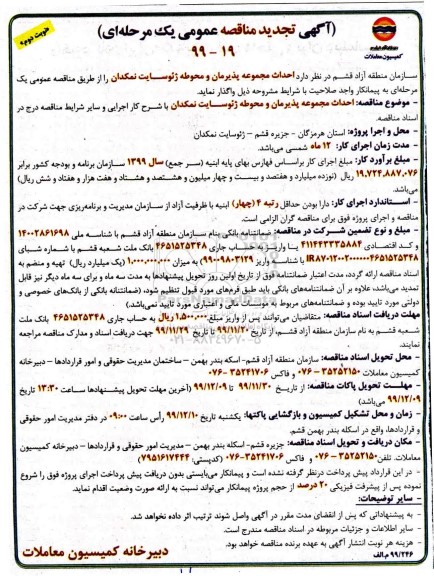 (آگهی تجدید مناقصه عمومی یک مرحله‌ای)
نوبت دوم
۹۹ - ۱۹
کمیسیون معاملات
سازمان منطقه آزاد قشم در نظر دارد احداث مجموعه پذیرمان و محوطه ژئوسایت نمکدان را از طریق مناقصه عمومی یک
مرحله‌ای به پیمانکار واجد صلاحیت با شرایط مشروحه ذیل واگذار نماید.
- موضوع مناقصه: احداث مجموعه پذیرمان و محوطه ژئوسایت نمکدان با شرح کار اجرایی و سایر شرایط مناقصه درج در
اسناد مناقصه.
- محل و اجرا پروژه: استان هرمزگان - جزیره قشم - ژئوسایت نمکدان
- مدت زمان اجرای کار: ۱۲ ماه شمسی می‌باشد.
- مبلغ برآورد کار: مبلغ اجرای کار براساس فهارس بهای پایه ابنیه (سر جمع) سال ۱۳۹۹ سازمان برنامه و بودجه کشور برابر
۱۹,۷۲۴,۸۸۷,۰۷۶ ریال (نوزده میلیارد و هفتصد و بیست و چهار میلیون و هشتصد و هشتاد و هفت هزار و هفتاد و شش ریال)
می‌باشد.
- استاندارد اجرای کار: دارا بودن حداقل رتبه ۴ (چهار) ابنیه با ظرفیت آزاد از سازمان مدیریت و برنامه‌ریزی جهت شرکت در
مناقصه و اجرای پروژه فوق برای مناقصه گران الزامی است.
- مبلغ و نوع تضمین شرکت در مناقصه: ضمانتنامه بانکی بنام سازمان منطقه آزاد قشم با شناسه ملی ۱۴۰۰۲۸۶۱۶۹۸
و کد اقتصادی ۴۱۱۴۴۳۳۳۵۸۸۴ یا واریز به حساب جاری ۴۶۵۱۵۲۵۳۴۸ بانک ملت شعبه قشم با شماره شبای
با شناسه واریز ۹۹۰۰۹۸۰۳۱۲۹ به میزان ۱,۰۰۰,۰۰۰,۰۰۰ (یک میلیارد ریال) تهیه و منضم به
اسناد مناقصه ارائه گردد، مدت اعتبار ضمانتنامه فوق از تاریخ اولین روز تحویل پیشنهادها به مدت سه ماه و برای سه ماه دیگر نیز قابل
تمدید می‌باشد، علاوه بر آن ضمانتنامه‌های بانکی باید طبق فرم‌های مورد قبول تنظیم شود، (ضمانتنامه بانکی از بانک‌های خصوصی و
دولتی مورد تایید بوده و ضمانتنامه‌های مربوط به موسسات مالی و اعتباری مورد تایید نمی‌باشد)
مهلت دریافت اسناد مناقصه: متقاضیان می‌توانند پس از واریز مبلغ ۱,۵۰۰,۰۰۰ ریال به حساب جاری ۴۶۵۱۵۲۵۳۴۸ بانک ملت
شعبه قشم به نام سازمان منطقه آزاد قشم، از تاریخ ۹۹/۱۱/۲۰ تا تاریخ ۹۹/۱۱/۲۹ جهت دریافت اسناد و مدارک مناقصه مراجعه
نمایند.
- محل تحویل اسناد مناقصه: سازمان منطقه آزاد قشم- اسکه بندر بهمن - ساختمان مدیریت حقوقی و امور قراردادها - دبیرخانه
کمیسیون معاملات ۳۵۲۵۲۱۵۰ - ۰۷۶ و فاکس ۳۵۲۴۱۷۰۶ - ۰۷۶
- مهلت تحویل پاکات مناقصه: از تاریخ ۹۹/۱۱/۳۰ تا تاریخ ۹۹/۱۲/۰۹ (آخرین مهلت تحویل پیشنهادها ساعت ۱۳:۳۰ تاریخ
۹۹/۱۲/۰۹ می‌باشد)
- زمان و محل تشکیل کمیسیون و بازگشایی پاکتها: یکشنبه تاریخ ۹۹/۱۲/۱۰ رأس ساعت ۰۹:۰۰ در دفتر مدیریت امور حقوقی
و قراردادها، واقع در اسکله بندر بهمن قشم.
- مکان دریافت و تحویل اسناد مناقصه: جزیره قشم- اسکله بندر بهمن - مدیریت امور حقوقی و قراردادها - دبیرخانه کمیسیون
معاملات. تلفن ۳۵۲۵۲۱۵۰ - ۰۷۶ و فاکس ۳۵۲۴۱۷۰۶ - ۰۷۶ (کدپستی: ۷۹۵۱۶۱۷۴۴۴)
- در این قرارداد پیش پرداخت درنظر گرفته نشده است و پیمانکار می‌بایستی بدون دریافت پیش پرداخت اجرای پروژه فوق را شروع
نموده پس از پیشرفت فیزیکی ۲۰ درصد از حجم پروژه پیمانکار می‌تواند نسبت به ارائه صورت وضعیت اقدام نماید.
- سایر توضیحات:
- به پیشنهاداتی که پس از انقضای مدت مقرر در آگهی واصل شوند ترتیب اثر داده نخواهد شد.
- سایر اطلاعات و جزئیات مربوطه در اسناد مناقصه مندرج است.
- هزینه هر نوبت انتشار آگهی به عهده برنده مناقصه خواهد بود.
۹۹/۲۴۶ م.الف
دبیرخانه کمیسیون معاملات